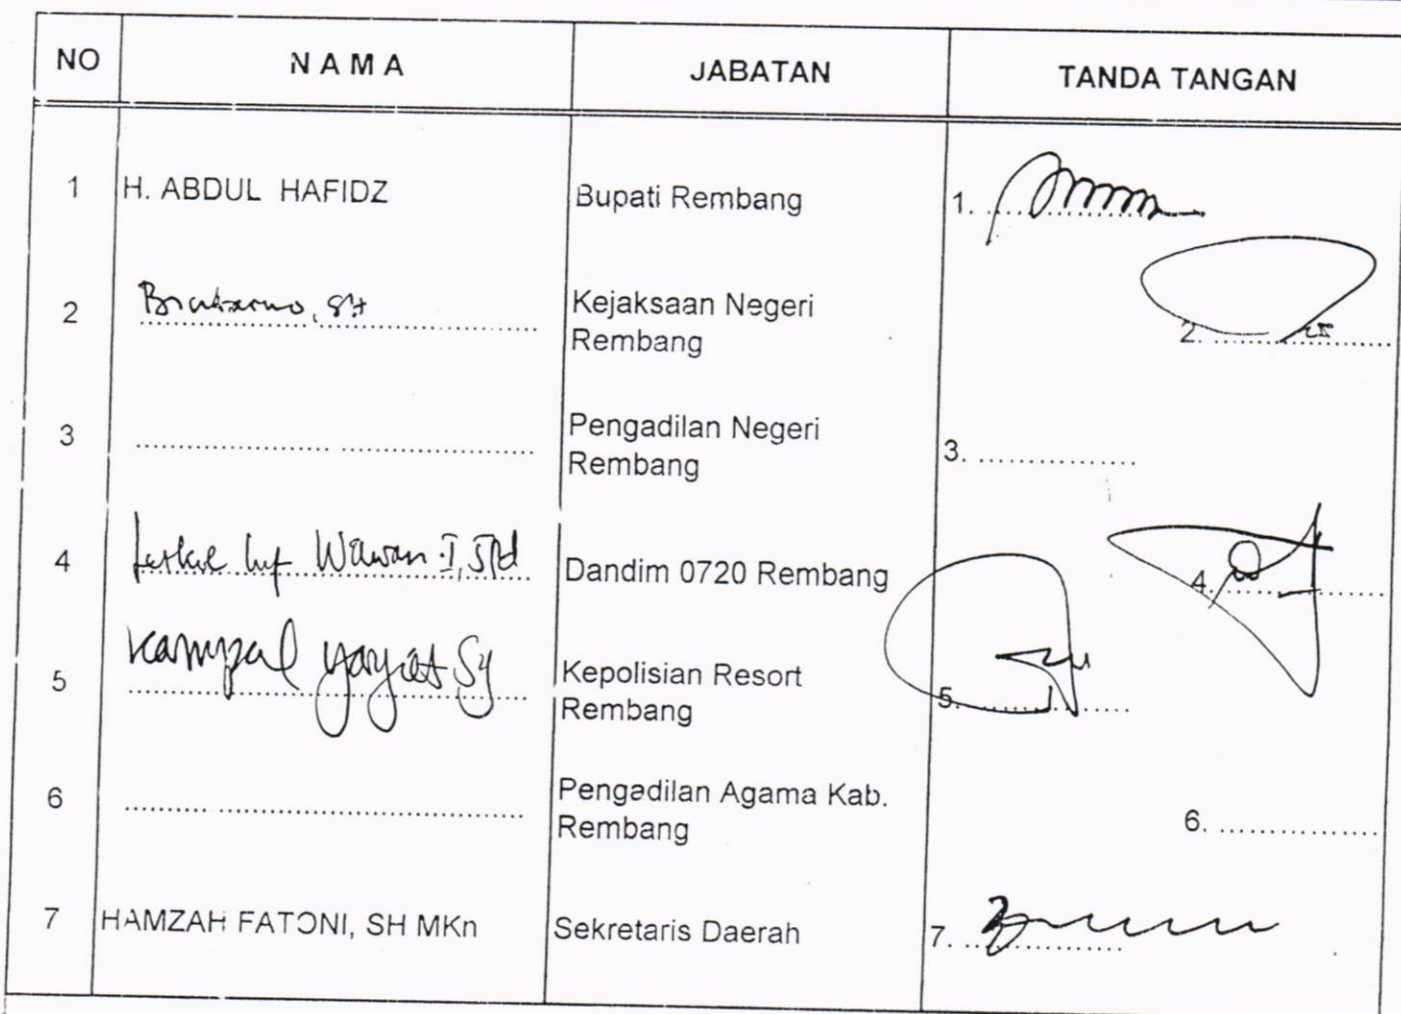 NO N A M A JABATAN TANDA TANGAN
1 H. ABDUL HAFIDZ Bupati Rembang 1. ....................
2 , SH Kejaksaan Negeri 2. ....................
Rembang
3 .................... Pengadilan Negeri 3. ....................
Rembang
4 Wawan .I, SPd Dandim 0720 Rembang 4. ....................
5 Kompol Yayat Sy Kepolisian Resort 5. ....................
Rembang
6 .................... Pengadilan Agama Kab. 6. ....................
Rembang
7 HAMZAH FATONI, SH MKn Sekretaris Daerah 7. ....................